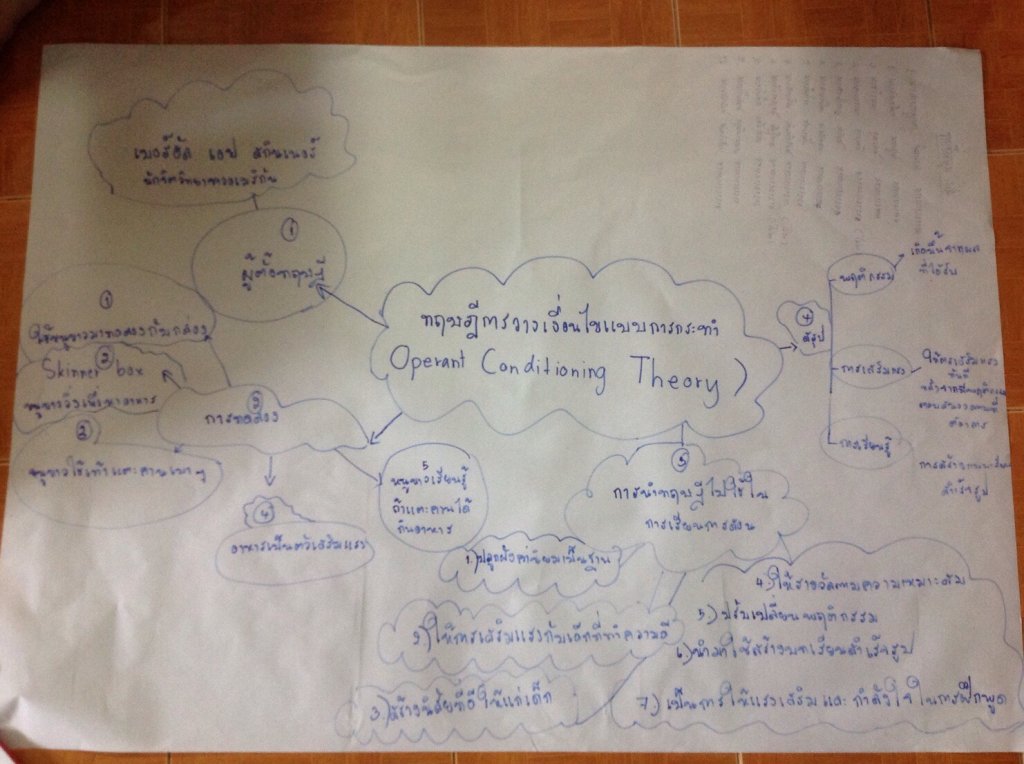 เบอร์ฮัล เอฟ สกินเนอร์
นักจิตวิทยาชาวอเมริกัน
1
ผู้ตั้งทฤษฎี
ทฤษฎีการวางเงื่อนไขแบบการกระทำ
Operant Conditioning Theory )
1
ใช้หนูขาวมาทดลองกับกล่อง
Skinner box
2
หนูขาววิ่งเพื่อหาอาหาร
การทดลอง
หนูขาวใช้เท้าแตะคานเบาๆ
4
อาหารเป็นตัวเสริมแรง
5
หนูขาวเรียนรู้
ถ้าแตะคานได้
กินอาหาร
3
การนำทฤษฎีไปใช้ใน
การเรียนการสอน
1.) ปลูกฝังค่านิยมเป็นฐาน
2.) ให้การเสริมแรงกับเด็กที่ทำความดี
3.) สร้างนิสัยที่ดีให้แก่เด็ก
4.) ให้รางวัลตามความเหมาะสม
5.) ปรับเปลี่ยนพฤติกรรม
6.) นำมาใช้สร้างบทเรียนสำเร็จรูป
7.) เป็นการให้แรงเสริมและกำลังใจในการฝึกพูด
4
สรุป
พฤติกรรม
เกิดขึ้นจากผล
ที่ได้รับ
การเสริมแรง
ให้การเสริมแรง
ทันที
ต้องการ
การเรียนรู้
การสร้างบทเรียน
สำเร็จรูป